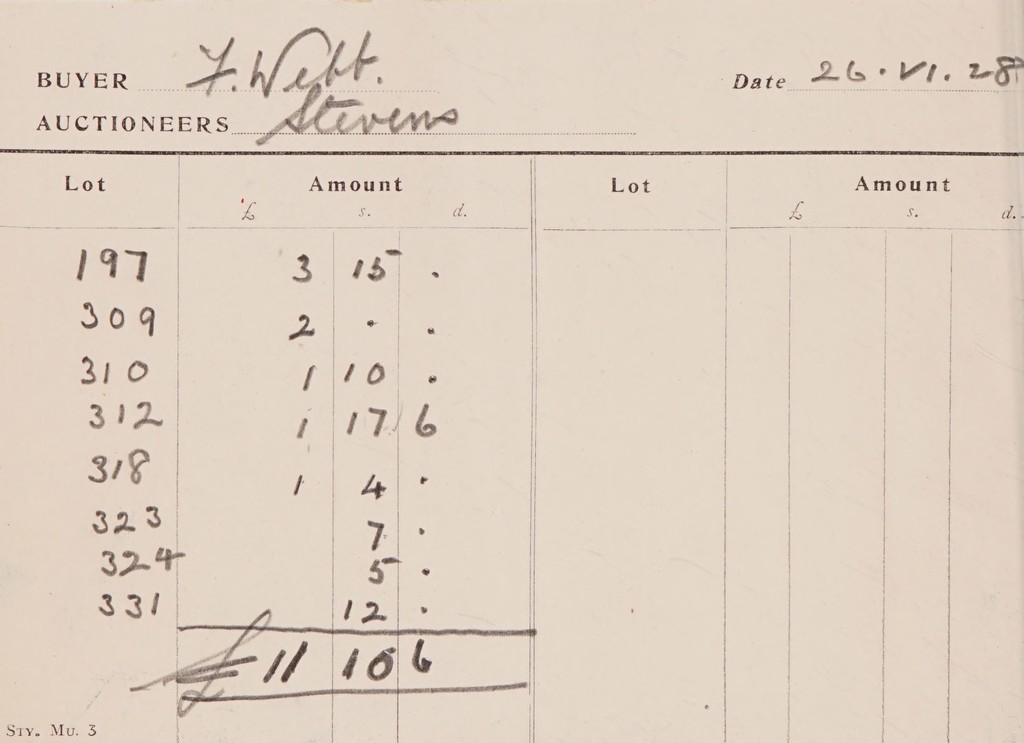 BUYER F. Webb.
Date 26.VI.28
AUCTIONEERS Stevens
Lot Amount Lot Amount
£ s. d. £ s. d.
197 3 15 .
309 2 . .
310 1 10 .
312 1 17 6
318 1 4 .
323 7 .
324 5 .
331 12 .
£ 11 10 6
STY. MU. 3